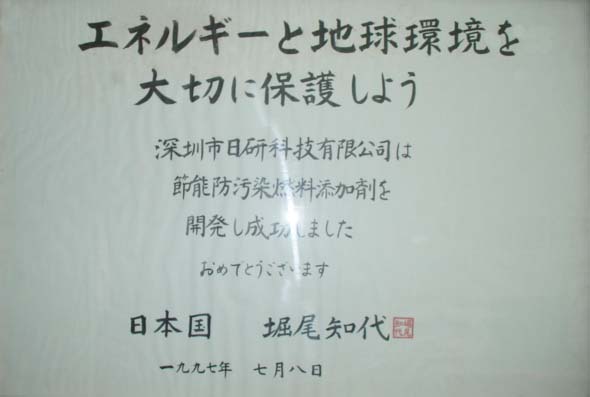 エネルギーと地球環境を
大切に保護しよう
深圳市日研科技有限公司は
節能防污染燃料添加剤を
開発し成功しました
おめでとうございます
日本国 堀尾知代
一九九七年 七月八日